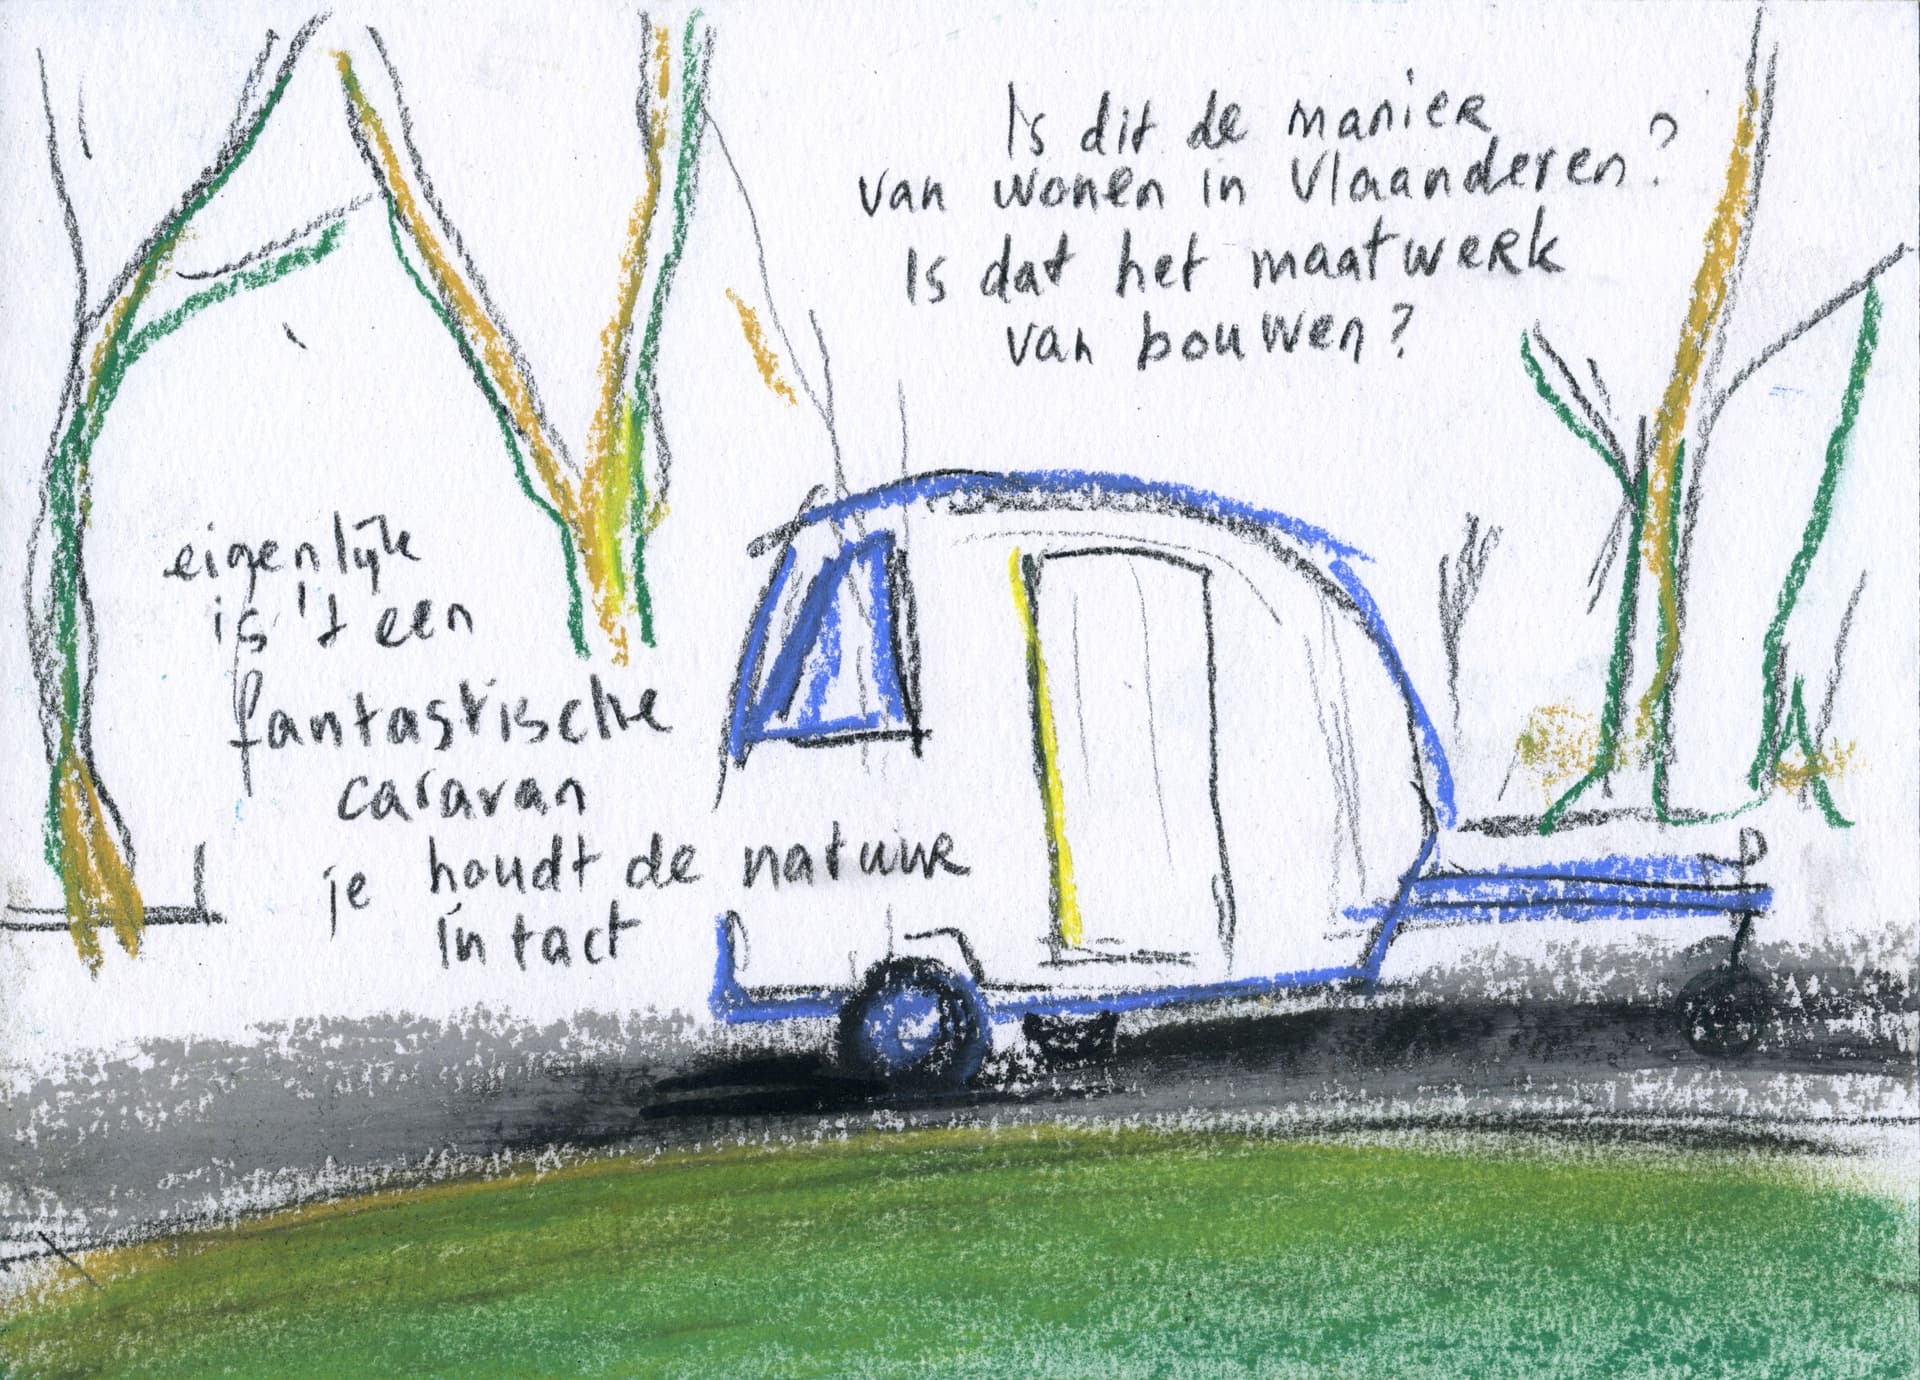 Is dit de manier
van wonen in Vlaanderen?
Is dat het maatwerk
van bouwen?
eigenlijk
is 't een
fantastische
caravan
je houdt de natuur
in tact